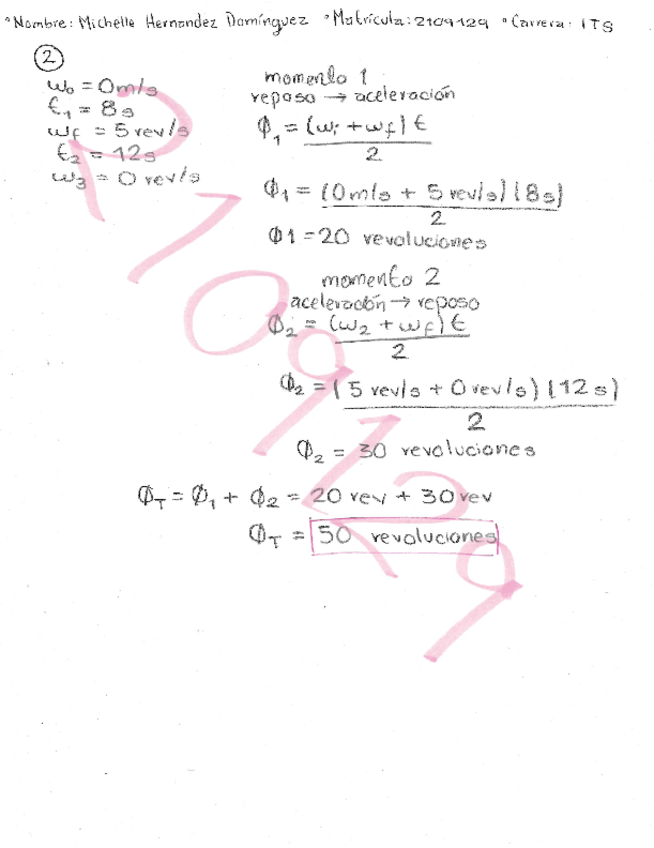 °Nombre: Michelle Hernandez Domínguez °Matrícula: 2109129 °Carrera: ITS
2
ω₀ = 0 m/s
t₁ = 8 s
ωf = 5 rev/s
t₂ = 12 s
ω₃ = 0 rev/s
momento 1
reposo → aceleración
Φ₁ = (ωᵢ + ωf) t
2
Φ₁ = (0 m/s + 5 rev/s) (8 s)
2
Φ1 = 20 revoluciones
momento 2
aceleración → reposo
Φ₂ = (ω₂ + ωf) t
2
Φ₂ = (5 rev/s + 0 rev/s) (12 s)
2
Φ₂ = 30 revoluciones
Φ_T = Φ₁ + Φ₂ = 20 rev + 30 rev
Φ_T = 50 revoluciones